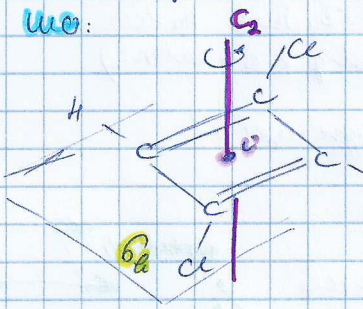 C₂
Cl
H
C
C i C
C
σh
Cl